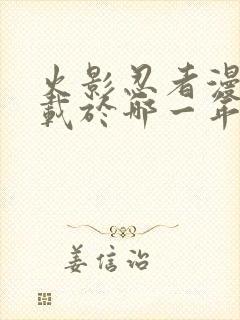 火影忍者漫
載於哪一年
姜信治